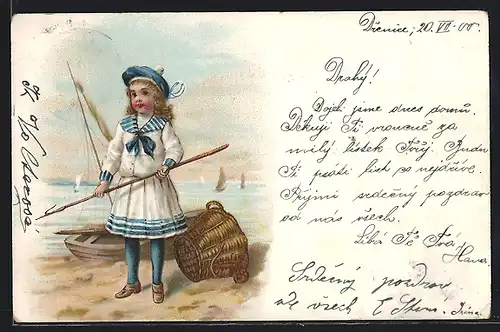 Dřenice, 20. VII. 00.
Drahý!
Dojeli jsme dnes domů.
Děkuji Ti vroucně za
milý lístek Tvůj. Budu
Ti psáti list co nejdříve.
Přijmi srdečný pozdrav
od nás všech.
Líbá Tě Tvá
Hana
Srdečný pozdrav
ode všech E
Irena.